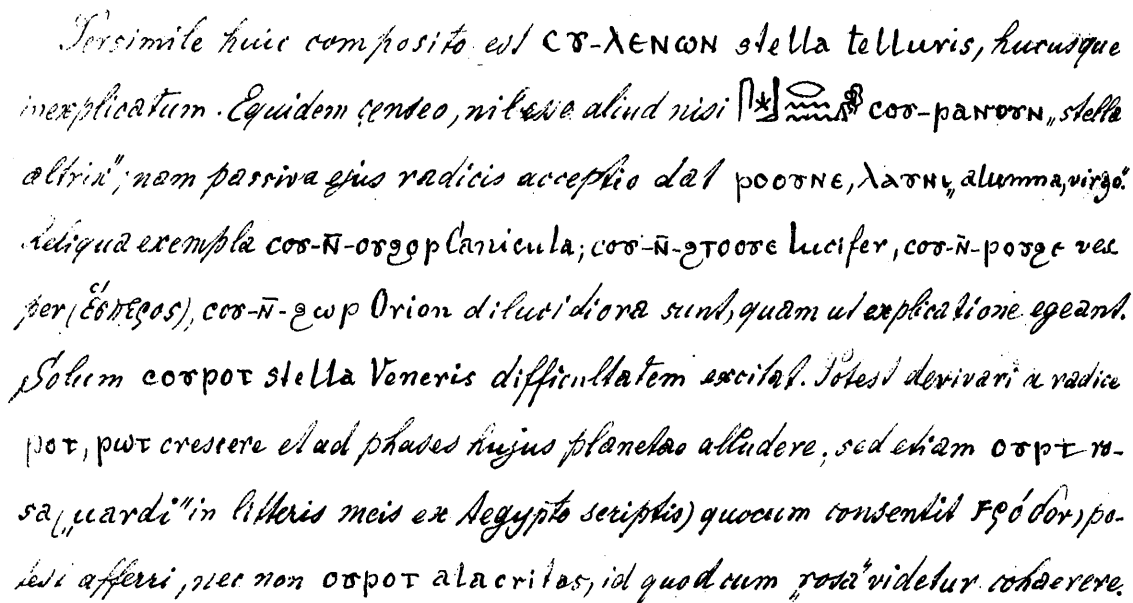 Persimile huic composito est ⲥⲟⲩ-ⲗⲉⲛⲱⲛ stella telluris, hucusque
inexplicatum. Equidem censeo, nil esse aliud nisi ⲥⲟⲩ-ⲣⲁⲛⲟⲩⲛ „stella
altrix"; nam passiva ejus radicis acceptio dat ⲣⲟⲟⲩⲛⲉ, ⲗⲁⲩⲛⲓ „alumna, virgo".
Reliqua exempla ⲥⲟⲩ-ⲛ̄-ⲟⲩϩⲟⲣ Canicula; ⲥⲟⲩ-ⲛ̄-ϩⲧⲟⲟⲩⲉ Lucifer, ⲥⲟⲩ-ⲛ̄-ⲣⲟⲩϩⲉ ves
per (ἕσπερος), ⲥⲟⲩ-ⲛ̄-ϩⲱⲣ Orion dilucidiora sunt, quam ut explicatione egeant.
Solum ⲥⲟⲩⲣⲟⲧ stella Veneris difficultatem excitat. Potest derivari a radice
ⲣⲟⲧ, ⲣⲱⲧ crescere et ad phases hujus planetae alludere; sed etiam ⲟⲩⲣⲧ ro-
sa („uardi" in litteris meis ex Aegypto scriptis) quocum consentit ϝρόδον, po-
test afferri, nec non ⲟⲩⲣⲟⲧ alacritas, id quod cum „rosa" videtur cohaerere.